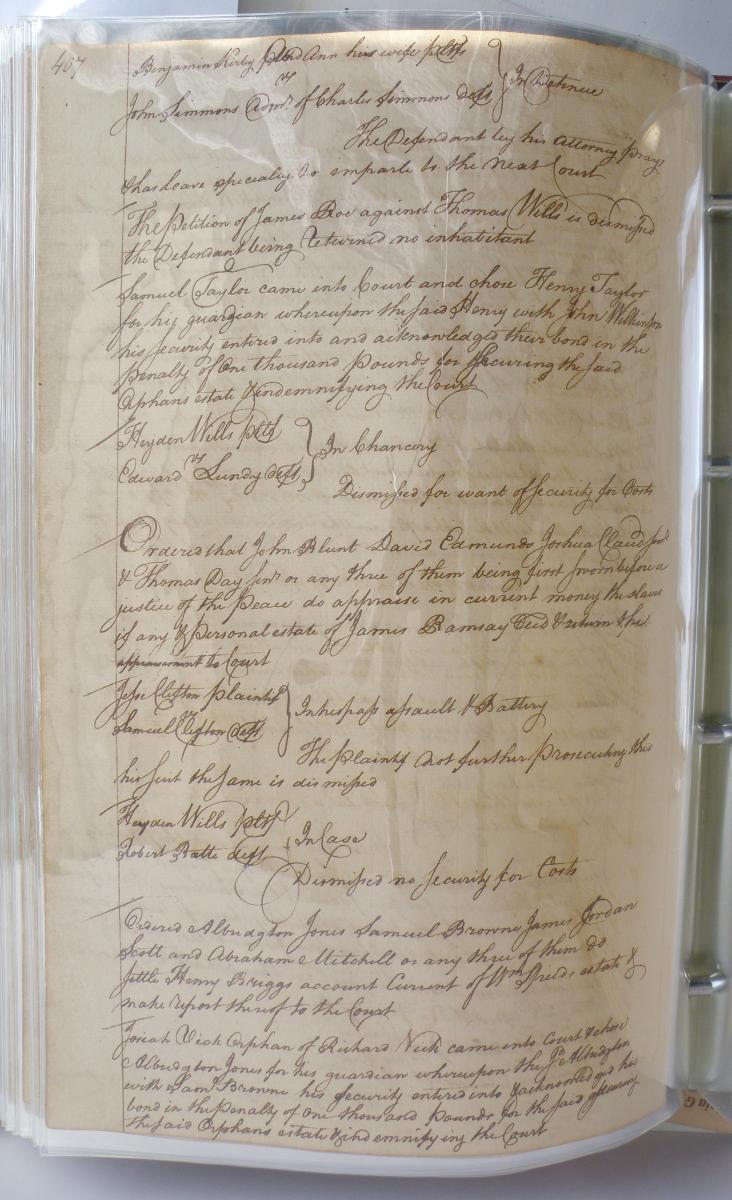 407
Benjamin Kirby and Ann his wife pltfs
vs
In Detinue
John Simmons Admr. of Charles Simmons deft
The Defendant by his Attorney prays
& has leave specially to imparle to the next Court
The Petition of James Roe against Thomas Wills is dismissed
the Defendant being returned no inhabitant
Samuel Taylor came into Court and chose Henry Taylor
for his guardian whereupon the said Henry with John Wilkinson
his security entered into and acknowledged their bond in the
penalty of One thousand Pounds for securing the said
Orphans estate & indemnifying the Court
Heyden Wills pltf
vs
In Chancery
Edward Lundy deft
Dismissed for want of security for Costs
Ordered that John Blunt David Edmunds Joshua Claud
& Thomas Day senr or any three of them being first sworn before a
justice of the peace do appraise in current money the slaves
if any & personal estate of James Ramsay Decd & return the
appraisement to Court
Jesse Clifton plaintif
vs
In trespass assault & Battery
Samuel Clifton deft
The plaintif not further prosecuting this
his suit the same is dismissed
Heyden Wills pltf
In Case
Robert Batte deft
Dismissed no security for Costs
Ordered Albridgton Jones Samuel Browne James Jordan
Scott and Abraham Mitchell or any three of them do
settle Henry Briggs account Current of Wm Speeds estate &
make report thereof to the Court
Josiah Vick Orphan of Richard Vick came into Court & chose
Albridgton Jones for his guardian whereupon the sd Albridgton
with Saml Browne his security entered into & acknowledged his
bond in the penalty of One thousand Pounds for the said securing
the said Orphans estate & indemnifying the Court